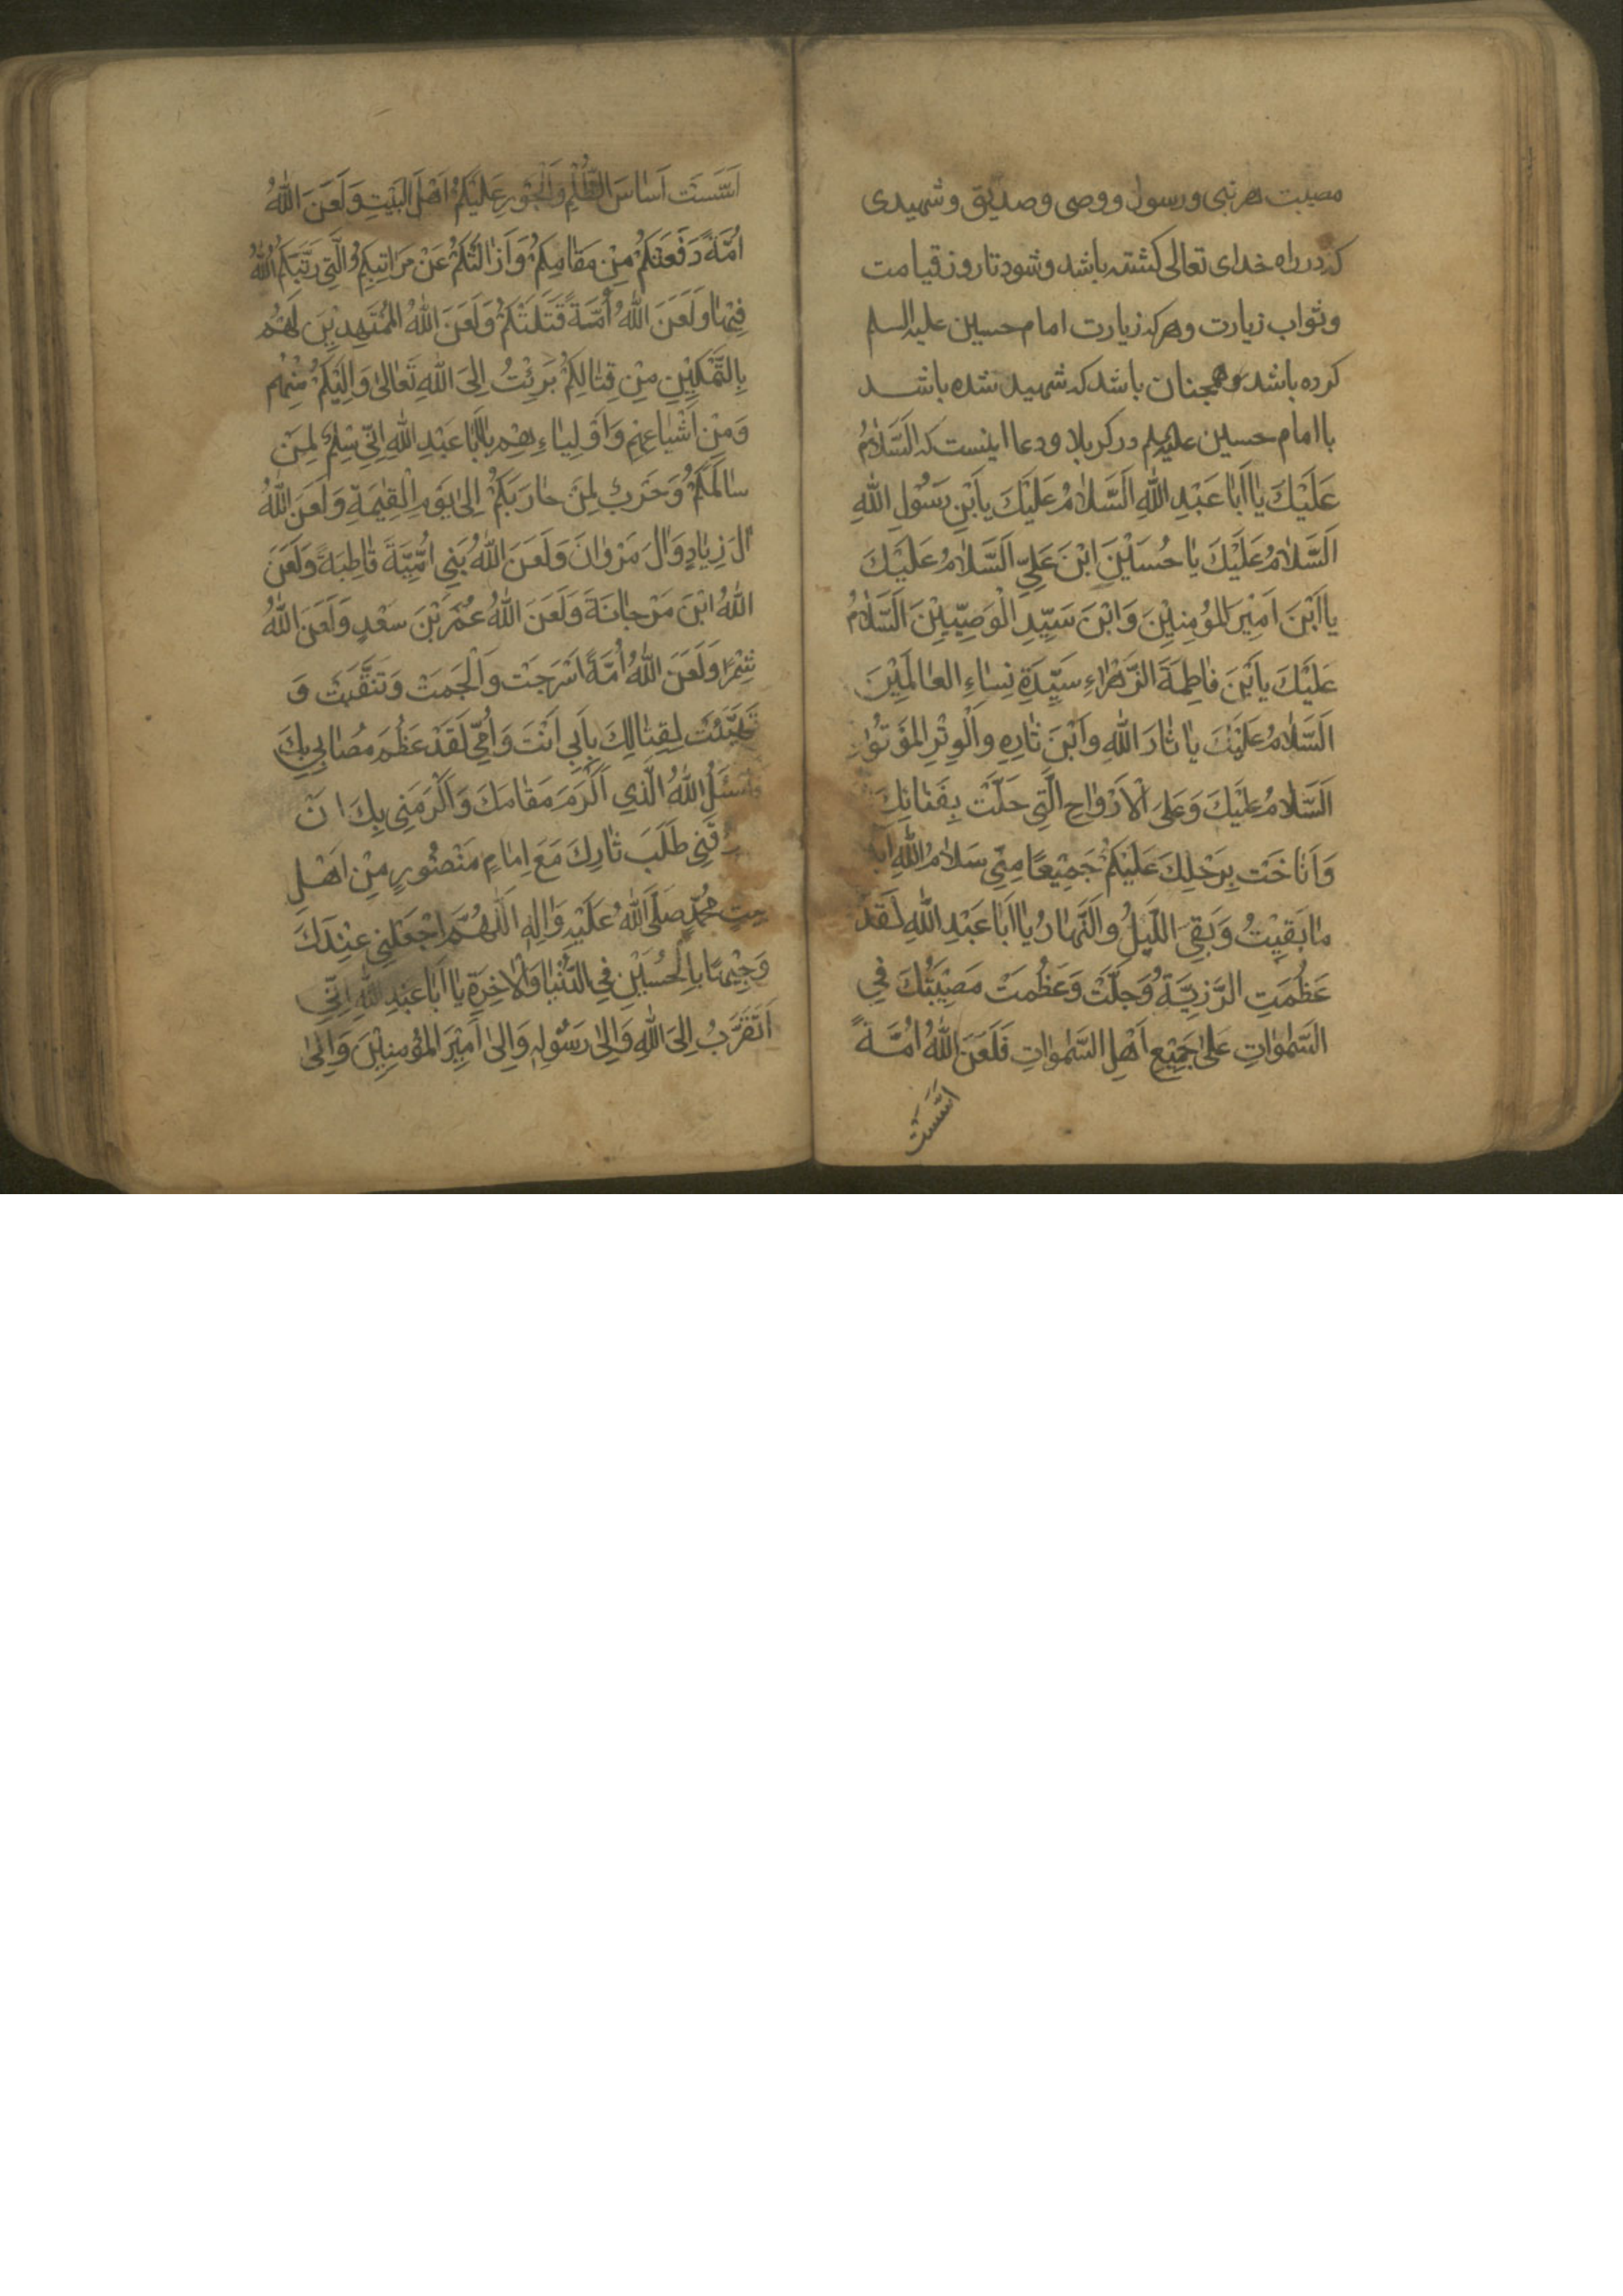 مصیبت هر نبی و رسول و وصی و صدیق و شهیدی
که در راه خدای تعالی کشته باشد و شود تا روز قیامت
و ثواب زیارت و هر که زیارت امام حسین علیه السلم
کرده باشد و همچنان باشد که شهید شده باشد
با امام حسین علیه السلم در کربلا و دعا اینست که اَلسَّلامُ
عَلَيْكَ يا اَبا عَبْدِ اللهِ اَلسَّلامُ عَلَيْكَ يا بْنَ رَسُولِ اللهِ
اَلسَّلامُ عَلَيْكَ يا حُسَيْنَ ابْنَ عَلِيٍّ اَلسَّلامُ عَلَيْكَ
يا ابْنَ اَمِيْرِ المُؤمِنِيْنَ وَابْنَ سَيِّدِ الْوَصِيِّيْنَ اَلسَّلامُ
عَلَيْكَ يا ابْنَ فاطِمَةَ الزَّهْراءِ سَيِّدَةِ نِساءِ العالَمِيْنَ
اَلسَّلامُ عَلَيْكَ يا ثارَ اللهِ وابْنَ ثارِهِ والْوِتْرِ المؤتُوْر
اَلسَّلامُ عَلَيْكَ وَعَلىَ الْاَرْواحِ الَّتِي حَلَّتْ بِفَنائِكَ
وَاَناخَتْ بِرَحْلِكَ عَلَيْكُمْ جَمِيْعًا مِنِّي سَلامُ اللهِ اَبَدًا
ما بَقِيْتُ وَبَقِيَ اللَّيْلُ والنَّهارُ يا اَبا عَبْدِ اللهِ لَقَدْ
عَظُمَتِ الرَّزِيَّةُ وَجَلَّتْ وَعَظُمَتْ مَصِيْبَتُكَ فِي
السَّمٰواتِ عَلىٰ جَمِيْعِ اَهْلِ السَّمٰواتِ فَلَعَنَ اللهُ اُمَّةً
اَسَّسَتْ
اَسَّسَتْ اَساسَ الظُّلْمِ وَالْجَوْرِ عَلَيْكُمْ اَهْلَ البَيْتِ وَلَعَنَ اللهُ
اُمَّةً دَفَعَتْكُمْ مِنْ مَقامِكُمْ وَاَزالَتْكُمْ عَنْ مَراتِبِكُمُ الَّتِي رَتَّبَكُمُ اللهُ
فِيْها وَلَعَنَ اللهُ اُمَّةً قَتَلَتْكُمْ وَلَعَنَ اللهُ المُمَهِّدِيْنَ لَهُمْ
بِالتَّمْكِيْنِ مِنْ قِتالِكُمْ بَرِئْتُ اِلىَ اللهِ تَعالىٰ وَاِلَيْكُمْ مِنْهُمْ
وَمِنْ اَشْياعِهِمْ وَاَوْلِياءِهِمْ يا اَبا عَبْدِ اللهِ اِنِّي سِلْمٌ لِمَنْ
سالَمَكُمْ وَحَرْبٌ لِمَنْ حارَبَكُمْ اِلىٰ يَوْمِ الْقِيٰمَةِ وَلَعَنَ اللهُ
الَ زِيادٍ وَالَ مَرْوانَ وَلَعَنَ اللهُ بَنِي اُمَيَّةَ قاطِبَةً وَلَعَنَ
اللهُ ابْنَ مَرْجانَةَ وَلَعَنَ اللهُ عُمَرَ بْنَ سَعْدٍ وَلَعَنَ اللهُ
شِمْرًا وَلَعَنَ اللهُ اُمَّةً اَسْرَجَتْ وَاَلْجَمَتْ وَتَنَقَّبَتْ وَ
تَهَيَّئَتْ لِقِتالِكَ بِاَبِي اَنْتَ وَاُمِّي لَقَدْ عَظُمَ مُصابِي بِكَ
فَاَسْئَلُ اللهَ الَّذِي اَكْرَمَ مَقامَكَ وَاَكْرَمَنِي بِكَ اَنْ
طَلَبَ ثارِكَ مَعَ اِمامٍ مَنْصُورٍ مِنْ اَهْلِ
مُحَمَّدٍ صَلَّى اللهُ عَلَيْهِ وَالِهِ اَللّٰهُمَّ اجْعَلْنِي عِنْدَكَ
وَجِيْهًا بِالْحُسَيْنِ فِي الدُّنْيا وَالْاخِرَةِ يا اَبا عَبْدِ اللهِ اِنِّي
اَتَقَرَّبُ اِلىَ اللهِ وَاِلىٰ رَسُولِهِ وَاِلىٰ اَمِيْرِ المُؤْمِنِيْنَ وَاِلىٰ